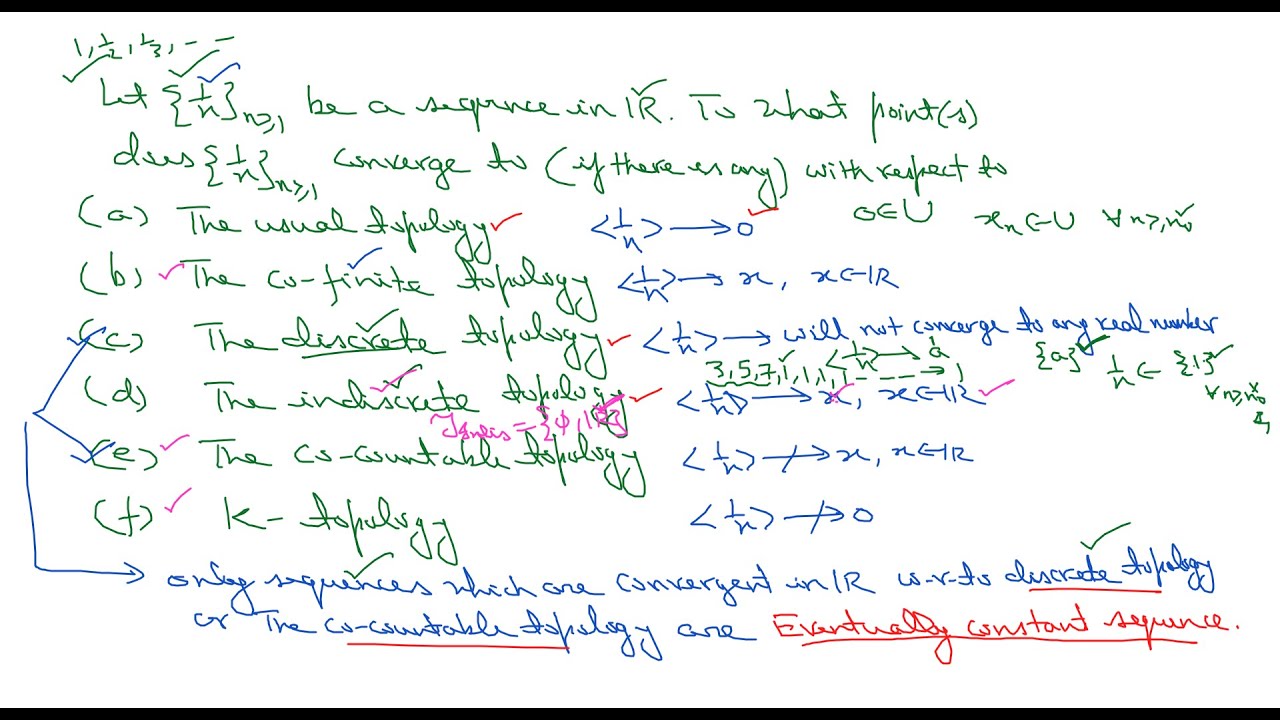 1, 1/2, 1/3, - -
Let {1/n}n≥1 be a sequence in IR. To what point(s)
does {1/n}n≥1 converge to (if there is any) with respect to
(a) The usual topology <1/n> → 0 0∈U xn∈U ∀ n≥n0
(b) The co-finite topology <1/n> → x, x∈IR
(c) The discrete topology <1/n> → will not converge to any real number
3, 5, 7, 1, 1, 1, 1 - - - - → 1 <1/n> → a {a} 1/n ∈ {1} ∀ n≥n0
(d) The indiscrete topology <1/n> → x, x∈IR
= {φ, IR}
(e) The co-countable topology <1/n> ↛ x, x∈IR
(f) K- topology <1/n> ↛ 0
→ only sequences which are convergent in IR w.r.to discrete topology
or The co-countable topology are Eventually constant sequence.